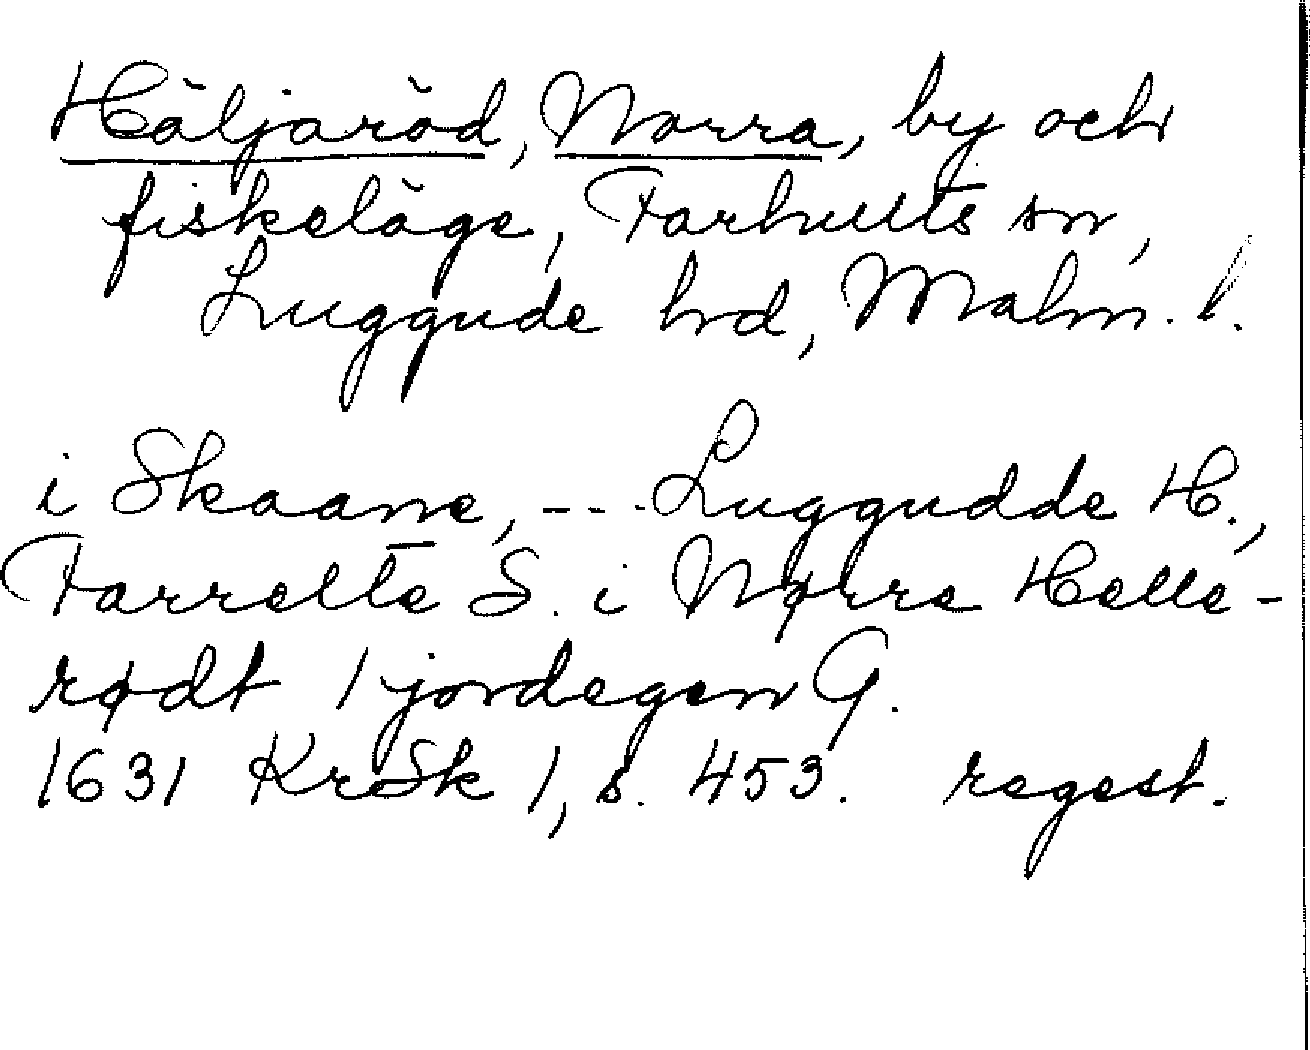 Häljaröd, Norra, by och
fiskeläge, Farhults sn,
Luggude hd, Malm. l.
i Skaane, --- Luggudde H.,
Farrelte S. i Nørre Helle-
rødt 1 jordegen G.
1631 KrSk 1, s. 453. regest.